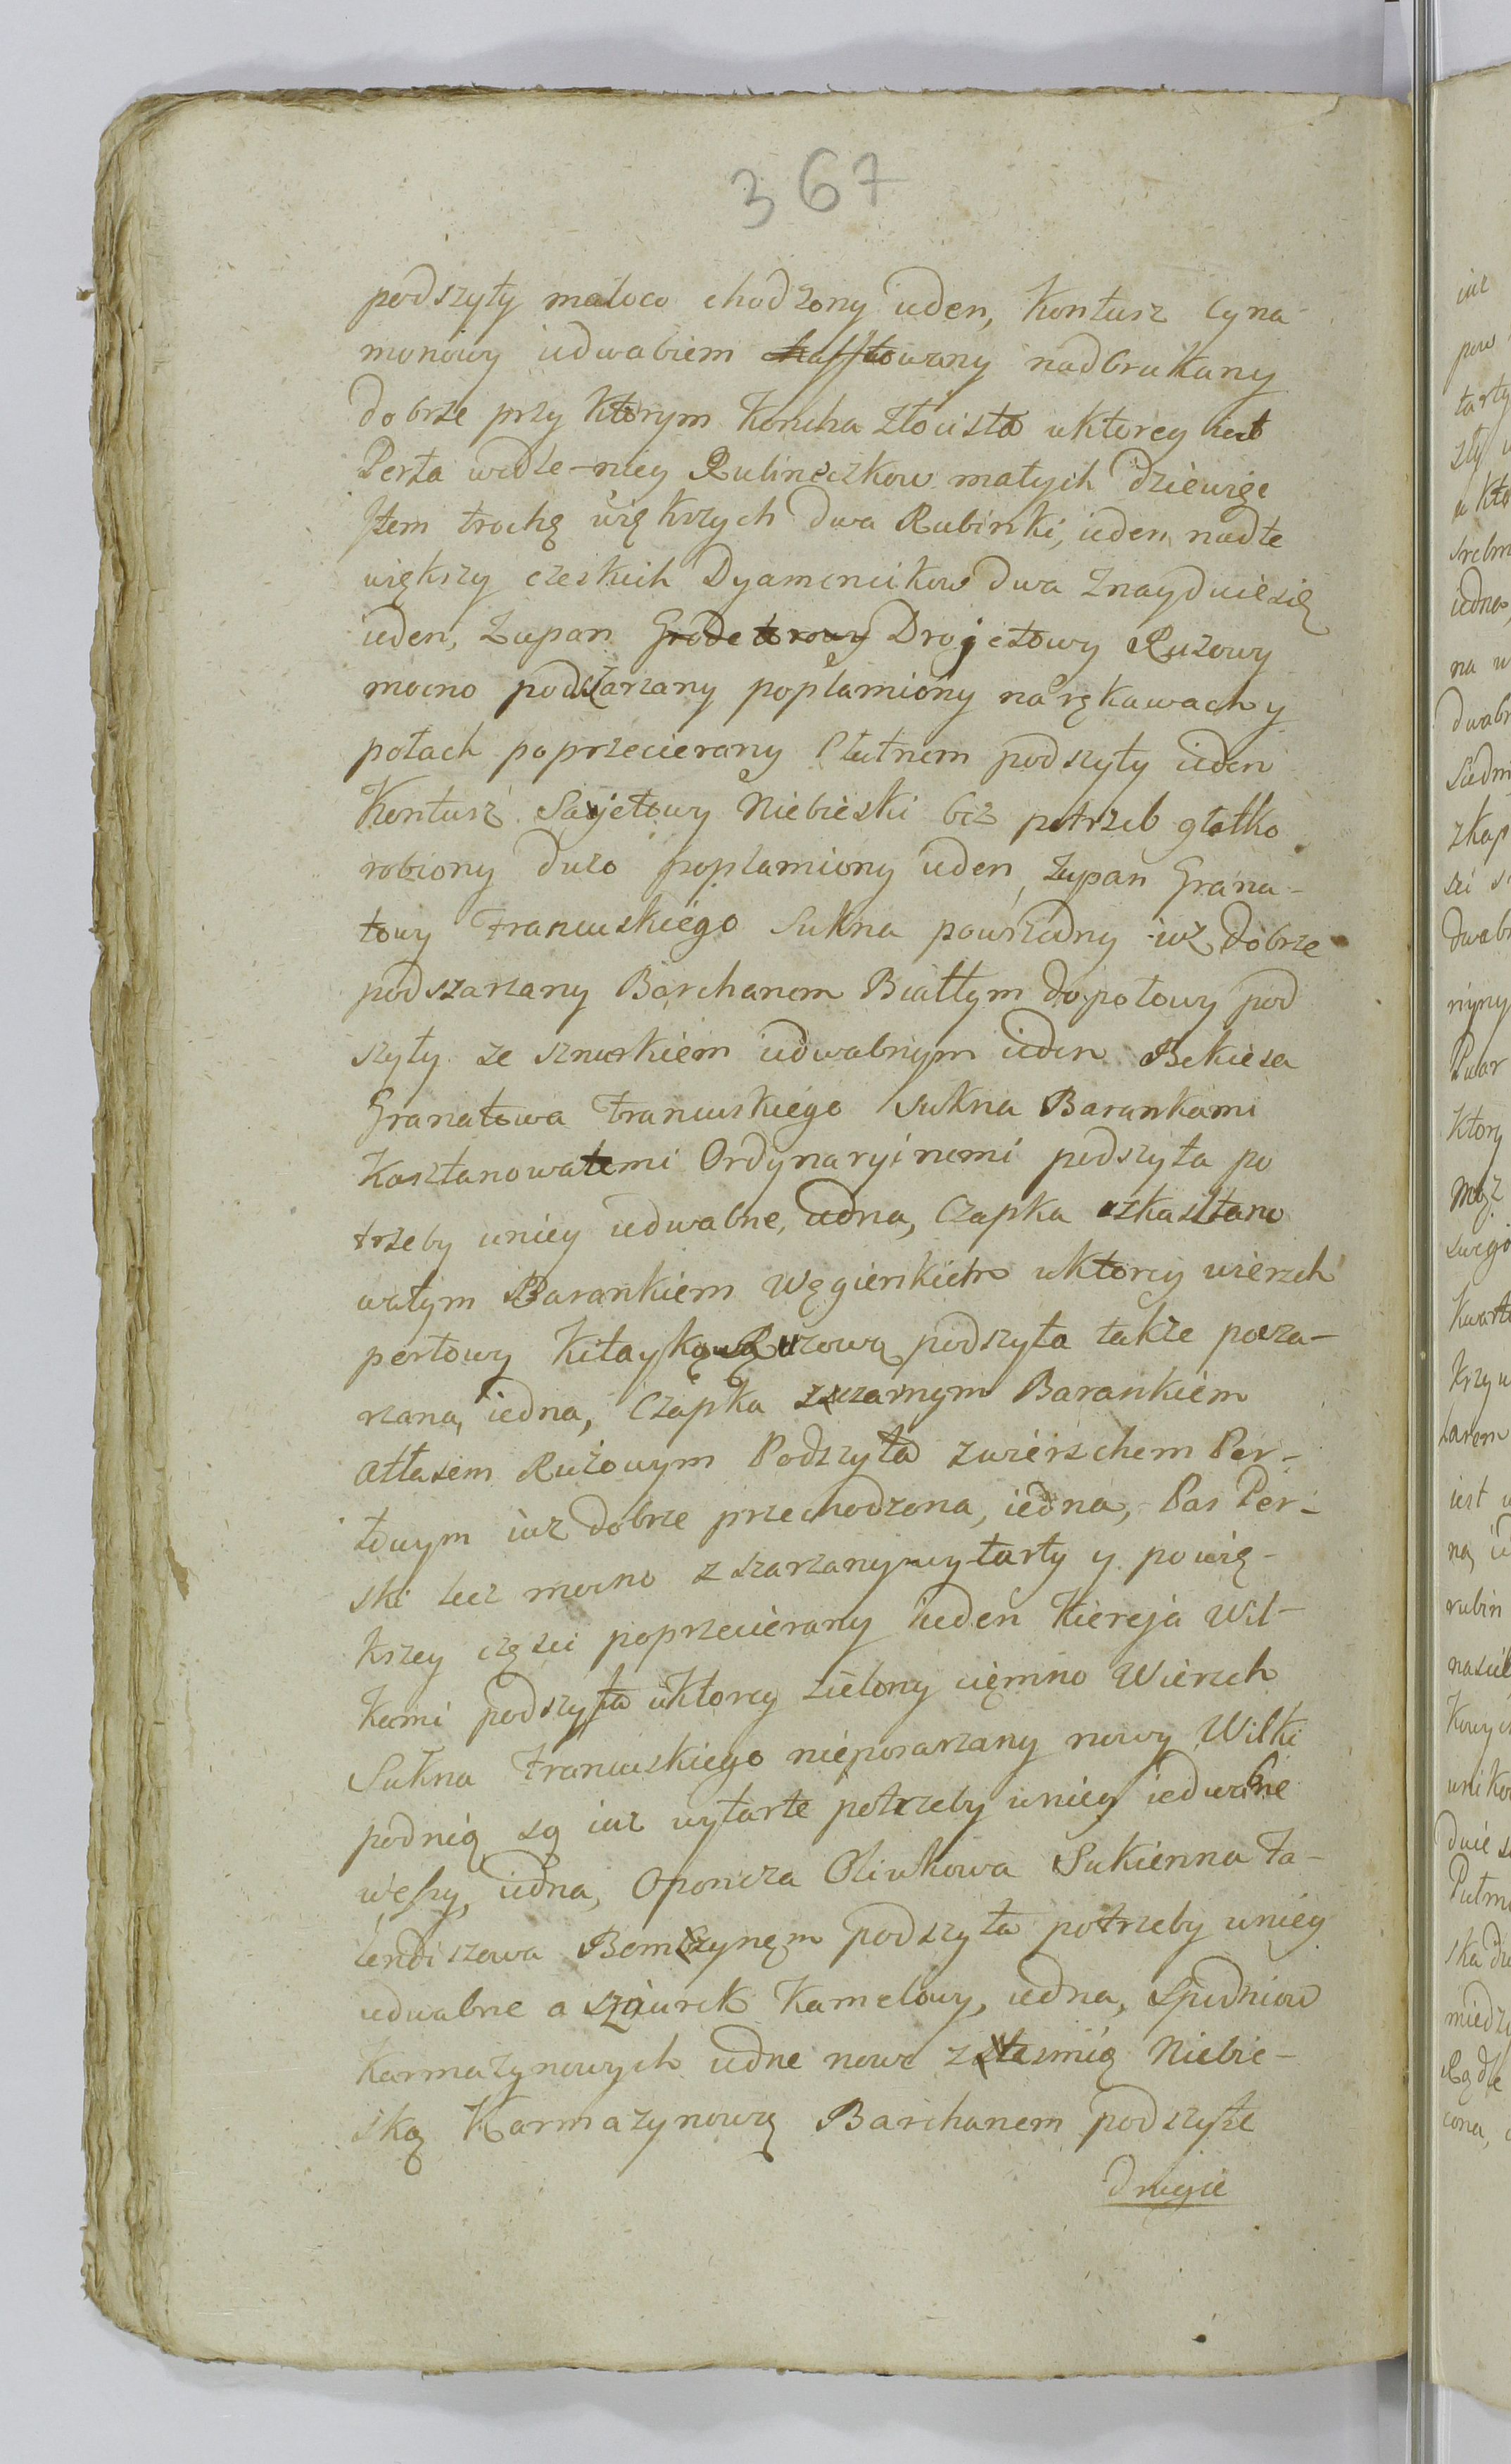 367
podszyty małoco chodzony ieden, Kontusz Cyna-
monowy iedwabiem hafftowany nadbrukany
dobrze przy Ktorym Koncha Złocista uktorey iest
Perła wedle-niey Rubineczkow małych dziewięc
Jtem trochę większych dwa Rubinki, ieden nadte
większy czeskich Dyamencikow dwa Znayduie się
ieden, Zupan Grodetorowy Drojetowy Ruzowy
mocno podszarzany poplamiony na rękawach y
połach poprzecierany Płutnem podszyty ieden
Kontusz Sajetowy Niebieski bez potrzeb głatko
robiony duzo poplamiony ieden, Zupan Grana-
towy Francuskiego Sukna powszedny iuz dobrze
podszarzany Barchanem Białłym dopołowy pod
szyty ze sznurkiem iedwabnym ieden Bekiesa
Granatowa Francuskiego Sukna Barankami
Kasztanowatemi Ordynaryinemi podszyta po
trzeby uniey iedwabne, iedna, Czapka zkasztano
watym Barankiem Węgierskiem uktorey wierzch
perłowy Kitayką Ruzową podszyta także posza-
rzana, iedna, Czapka zczarnym Barankiem
Atłasem Rużowym Podszyta zwierzchem Per-
łowym iuz dobrze przechodzona, iedna, Pas Per-
ski lecz mocno zszarzany wytarty y powię-
kszey częsci poprzecierany ieden Kiereja Wil-
kami podszyta uktorey zielony ciemno Wierzch
Sukna Francuskiego nieposzarzany nowy Wilki
podnią są iuz wytarte potrzeby uniey iedwabne
węszy, iedna, Oponcza Oliwkowa Sukienna Fa-
lendiszowa Bomzynem podszyta potrzeby uniey
iedwabne a sznurek Kamelowy, iedna, Spodniow
Karmazynowych iedne nowe z tasmią Niebie-
ską Karmazynową Barchanem podszyte
drugie
iuz
tarty
iedna,
na w
Ktory
swego
iest
rubin
miedzi